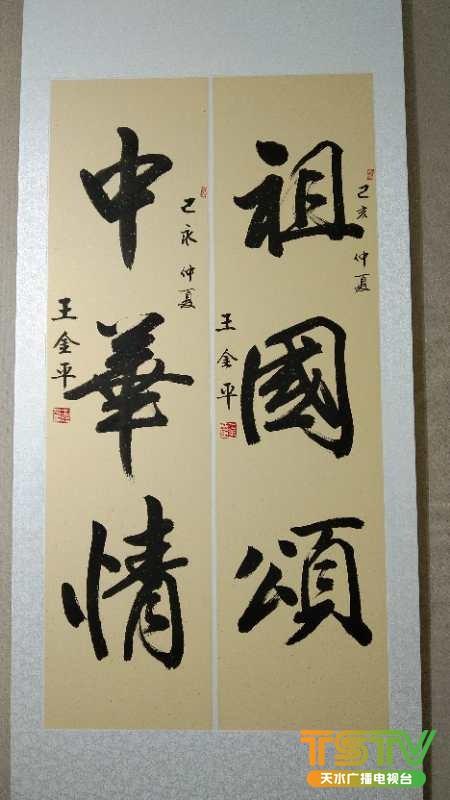 祖國頌
己亥仲夏
王金平
中華情
己亥仲夏
王金平
TSTV
天水广播电视台